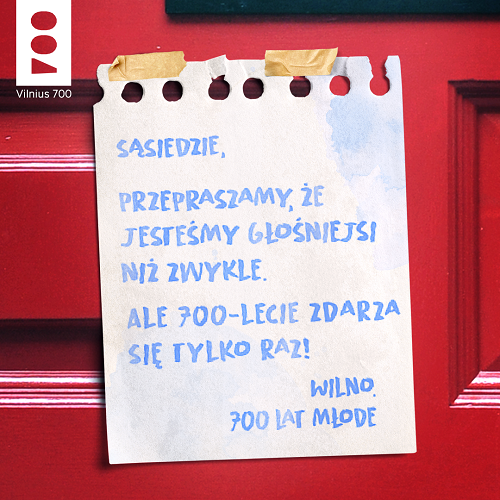 700
Vilnius 700
SĄSIEDZIE,
PRZEPRASZAMY, ŻE
JESTEŚMY GŁOŚNIEJSI
NIŻ ZWYKLE.
ALE 700-LECIE ZDARZA
SIĘ TYLKO RAZ!
WILNO.
700 LAT MŁODE